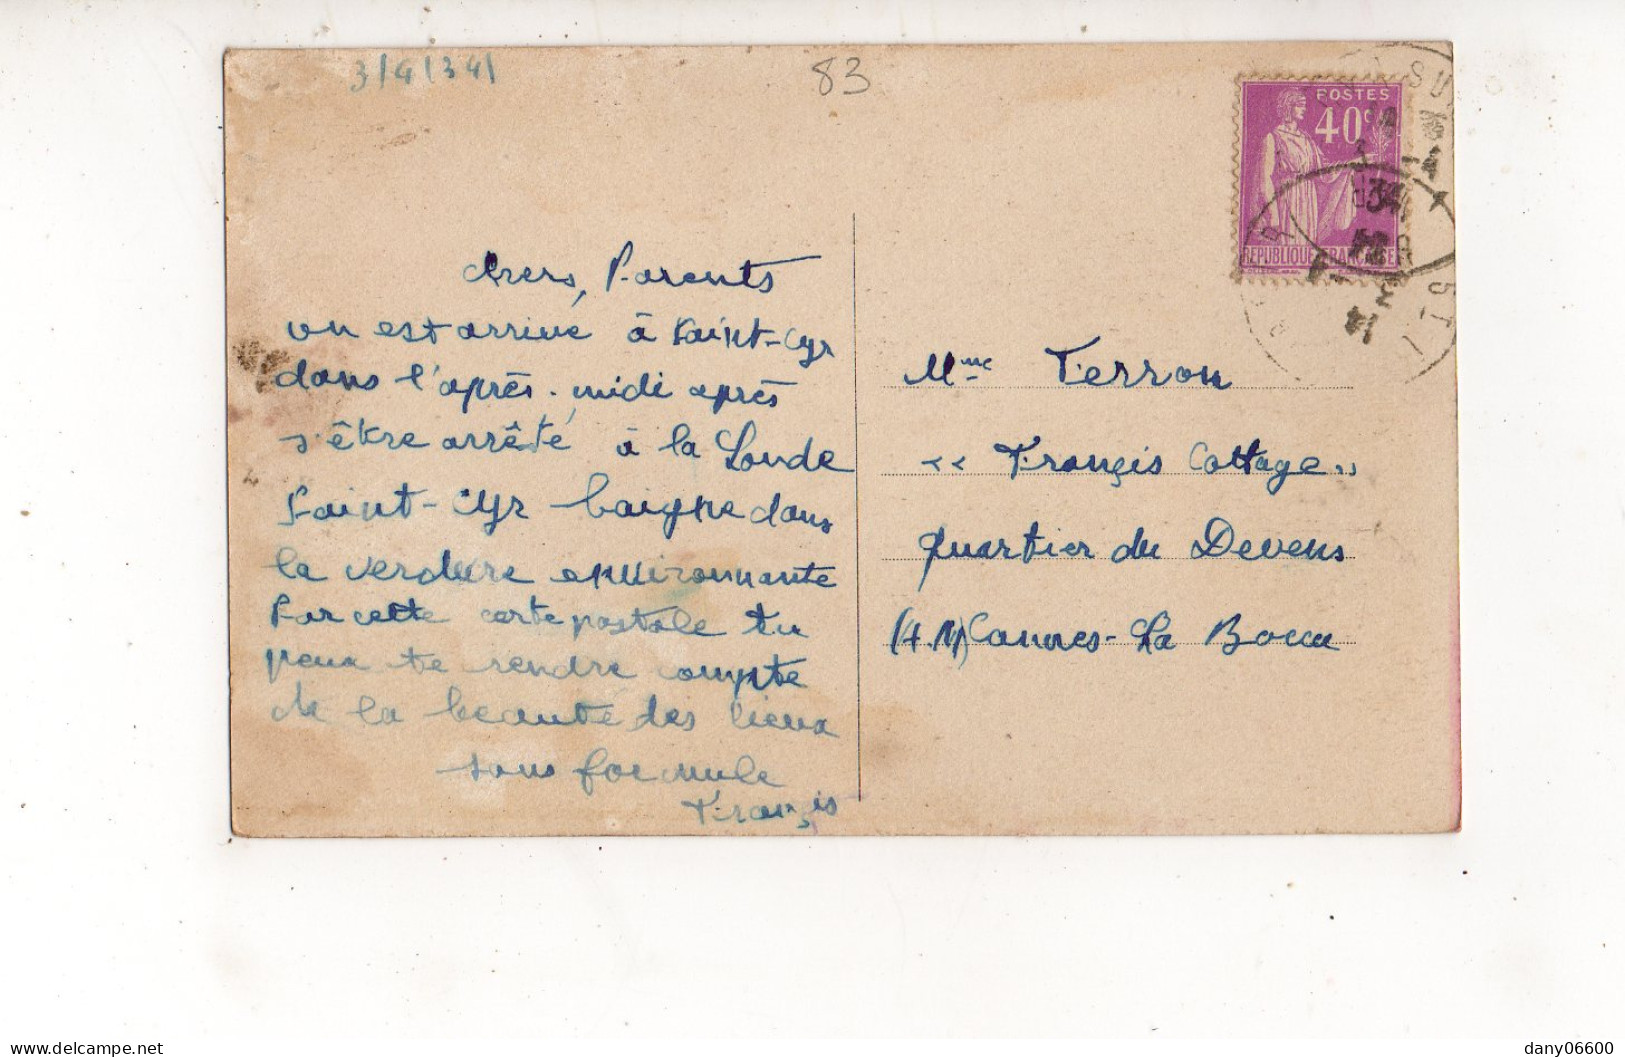 3/4/34
83
POSTES
40c
REPUBLIQUE FRANÇAISE
chers, Parents
on est arrivé à Saint-Cyr
dans l'après-midi après
s'être arrêté à la Londe
Saint-Cyr baigne dans
la verdure environnante
Par cette carte postale tu
peux te rendre compte
de la beauté des lieux
sans formule
Françis
Mme Terron
« Françis Cottage »
quartier du Devens
(A.M) Cannes-La Bocca
delcampe.net
dany06600